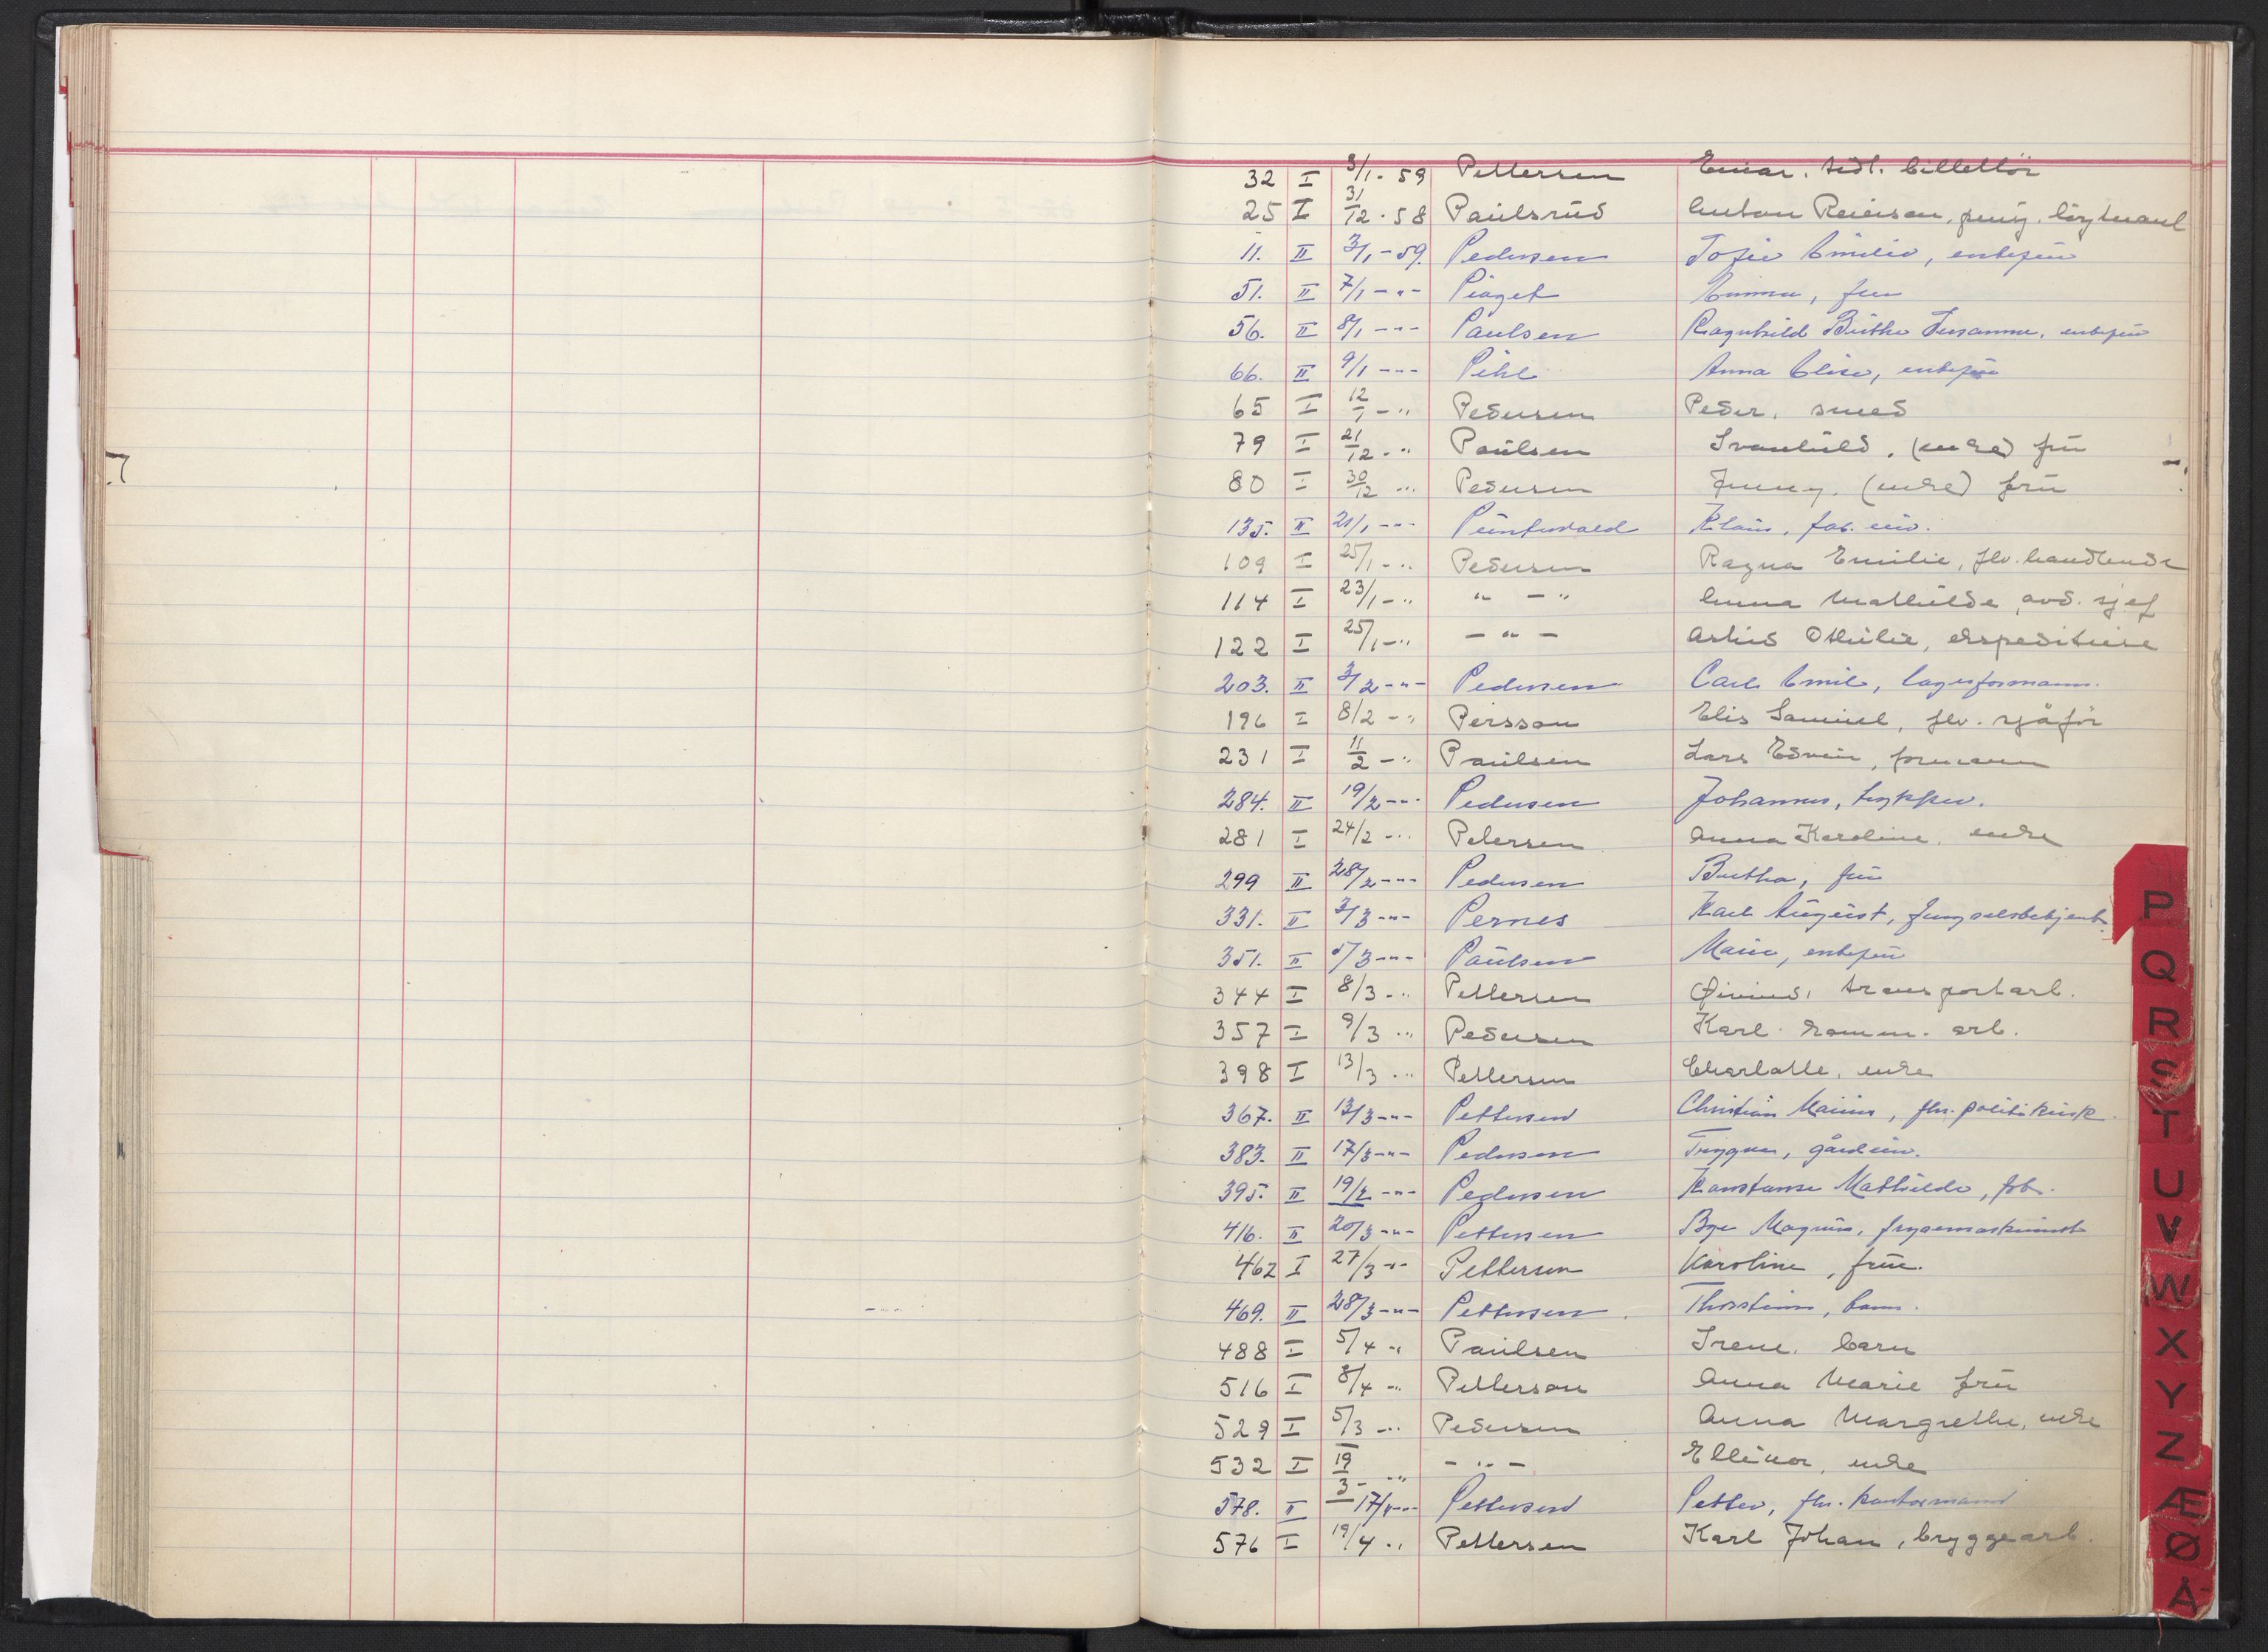 32 I 3/1 - 59 Pettersen Einar. tidl. billettör
25 I 31/12 - 58 Paulsrud Anton Reiersen, pens. löytnant
11. II 3/1 - 59. Pedersen Sofie Emilie, enkefru
51. II 7/1 - " - Piaget Emma, fru
56. II 8/1 - " - Paulsen Ragnhild Birthe Susanne, enkefru
66. II 9/1 - " - Pihl Anna Elise, enkefru
65 I 12/1 - " Pedersen Peder, smed
79 I 21/12 - " Paulsen Svanhild, (enke) fru
80 I 30/12 - " Pedersen Jenny, (enke) fru
135. II 21/1 - " - Klaus, fab. eier.
109 I 25/1 - " Pedersen Ragna Emilie, flv. handlende
114 I 23/1 - " " - " Anna Mathilde avd. sjef
122 I 25/1 - " - " - Astrid Othilie, ekspeditrise
203. II 3/2 - " - Pedersen Carl Emil, lagerformann.
196 I 8/2 - " Persson Elis Samuel, flv. sjåför
231 I 11/2 - " Paulsen Lars Edvin, formann
284. II 19/2 - " - Pedersen Johannes, trykker.
281 I 24/2 - " Petersen Anna Karoline, enke
299 II 28/2 - " - Pedersen Bertha, fru
331. II 3/3 - " - Pernes Karl August, fengselsbetjent.
351. II 5/3 - " - Paulsen Marie, enkefru
344 I 8/3 - " Pettersen Øivind, transportarb.
357 I 9/3 " Pedersen Karl komm. arb.
398 I 13/3 - " Pettersen Charlotte, enke
367. II 13/3 - " - Pettersen Christian Marius, fhv. politikonst.
383. II 17/3 - " - Pedersen Trygve, gårdeier.
395. II 19/2 - " - Pedersen Konstanse Mathilde, frk.
416. II 20/3 - " - Pettersen Magnus, frysemaskinist
462 I 27/3 - " - Pettersen Karoline, frue.
469. II 28/3 - " - Pettersen. Thorstein, barn.
488 I 5/4 - " Paulsen Irene, barn
516 I 8/4 - " Petterson Anna Marie fru
529 I 5/3 - " Pedersen Anna Margrethe, enke
532 I 19/3 - " - " - Ellinor, enke
578. II 17/4 - " - Pettersen Petter, fhv. kontormann
576 I 19/4 - " Pettersen Karl Johan, bryggearb.
P
Q
R
S
T
U
V
W
X
Y
Z
Æ
Ø
Å